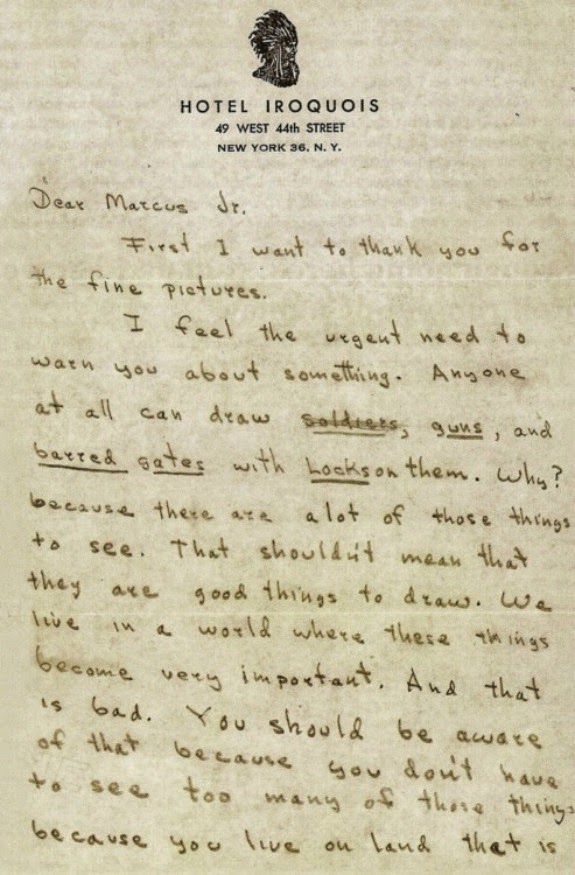 HOTEL IROQUOIS
49 WEST 44th STREET
NEW YORK 36, N. Y.
Dear Marcus Jr.
First I want to thank you for
the fine pictures.
I feel the urgent need to
warn you about something. Anyone
at all can draw soldiers, guns, and
barred gates with Locks on them. Why?
because there are alot of those things
to see. That shouldn't mean that
they are good things to draw. We
live in a world where these things
become very important. And that
is bad. You should be aware
of that because you don't have
to see too many of those things
because you live on land that is